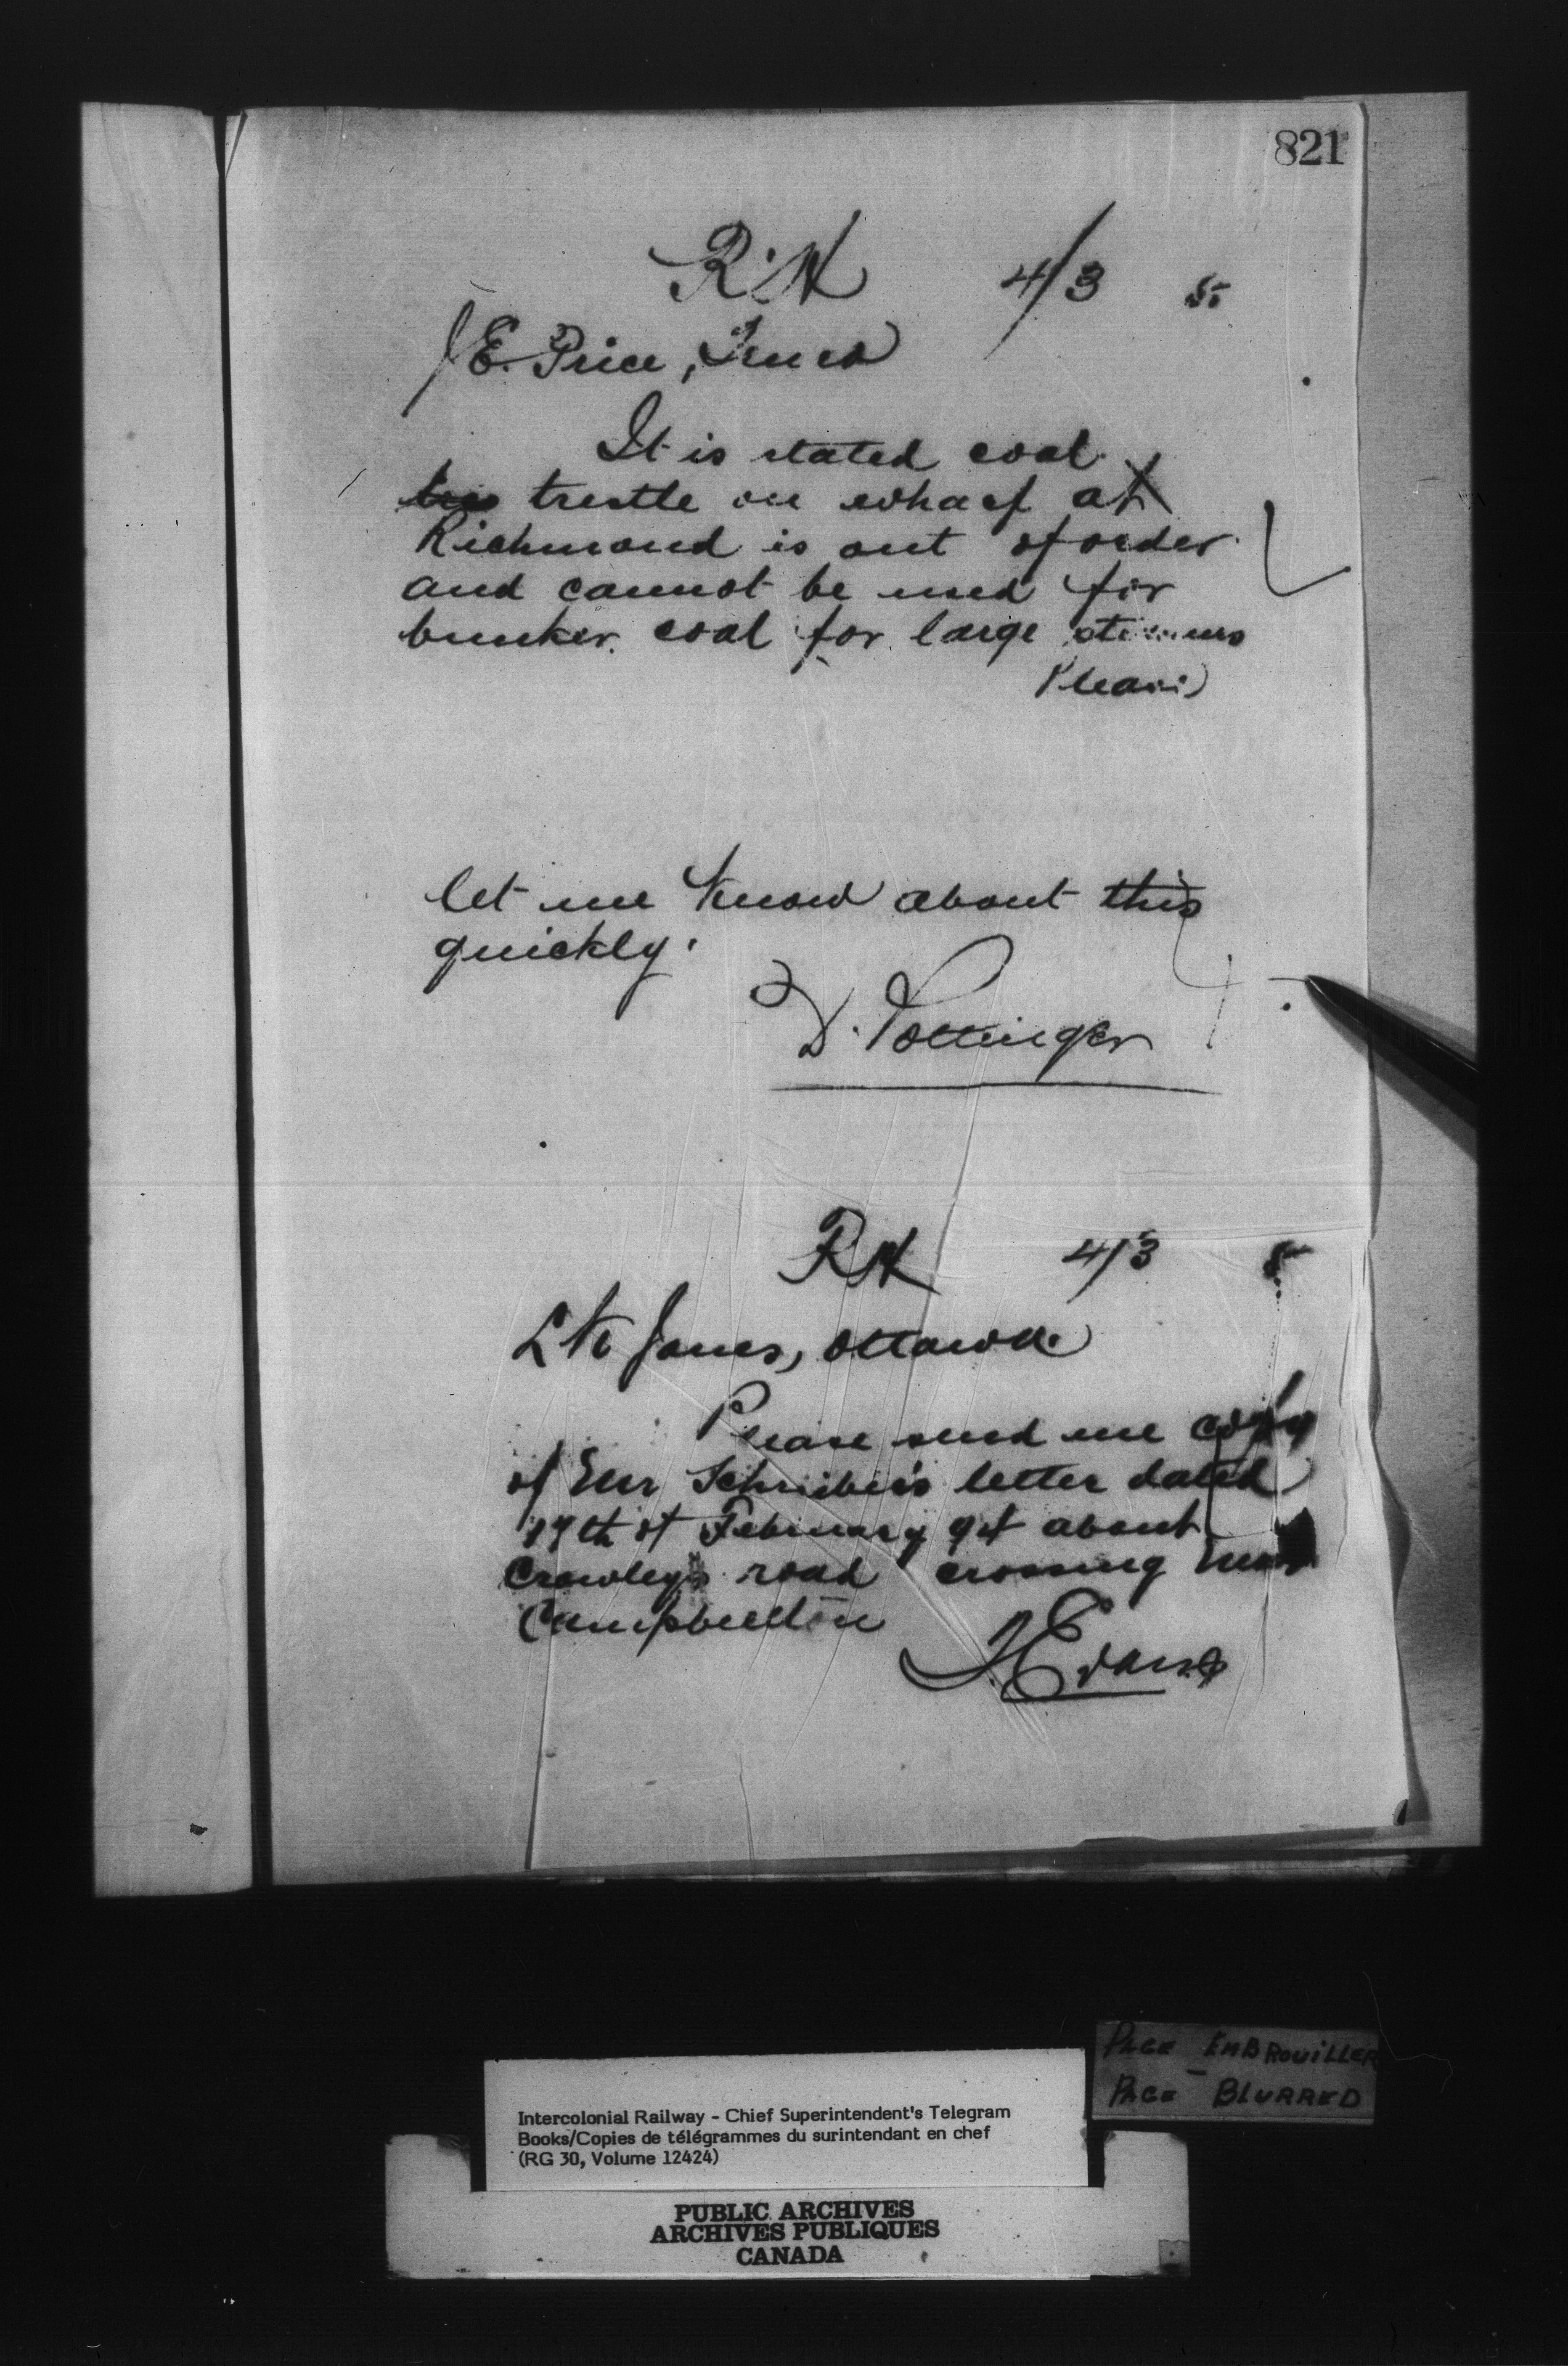 821
R'y 4/3 85
J E. Price, Truro
It is stated coal
trestle on wharf at
Richmond is out of order
and cannot be used for
bunker coal for large steamers
Please
let me know about this
quickly.
D. Pottinger
Ry 4/3 85
L K Jones, Ottawa
Please send me copy
of Mr Schreiber's letter dated
of February about
Crowley's road crossing near
Campbellton
PAGE EMBROUILLER
PAGE BLURRED
Intercolonial Railway - Chief Superintendent's Telegram
Books/Copies de télégrammes du surintendant en chef
(RG 30, Volume 12424)
PUBLIC ARCHIVES
ARCHIVES PUBLIQUES
CANADA